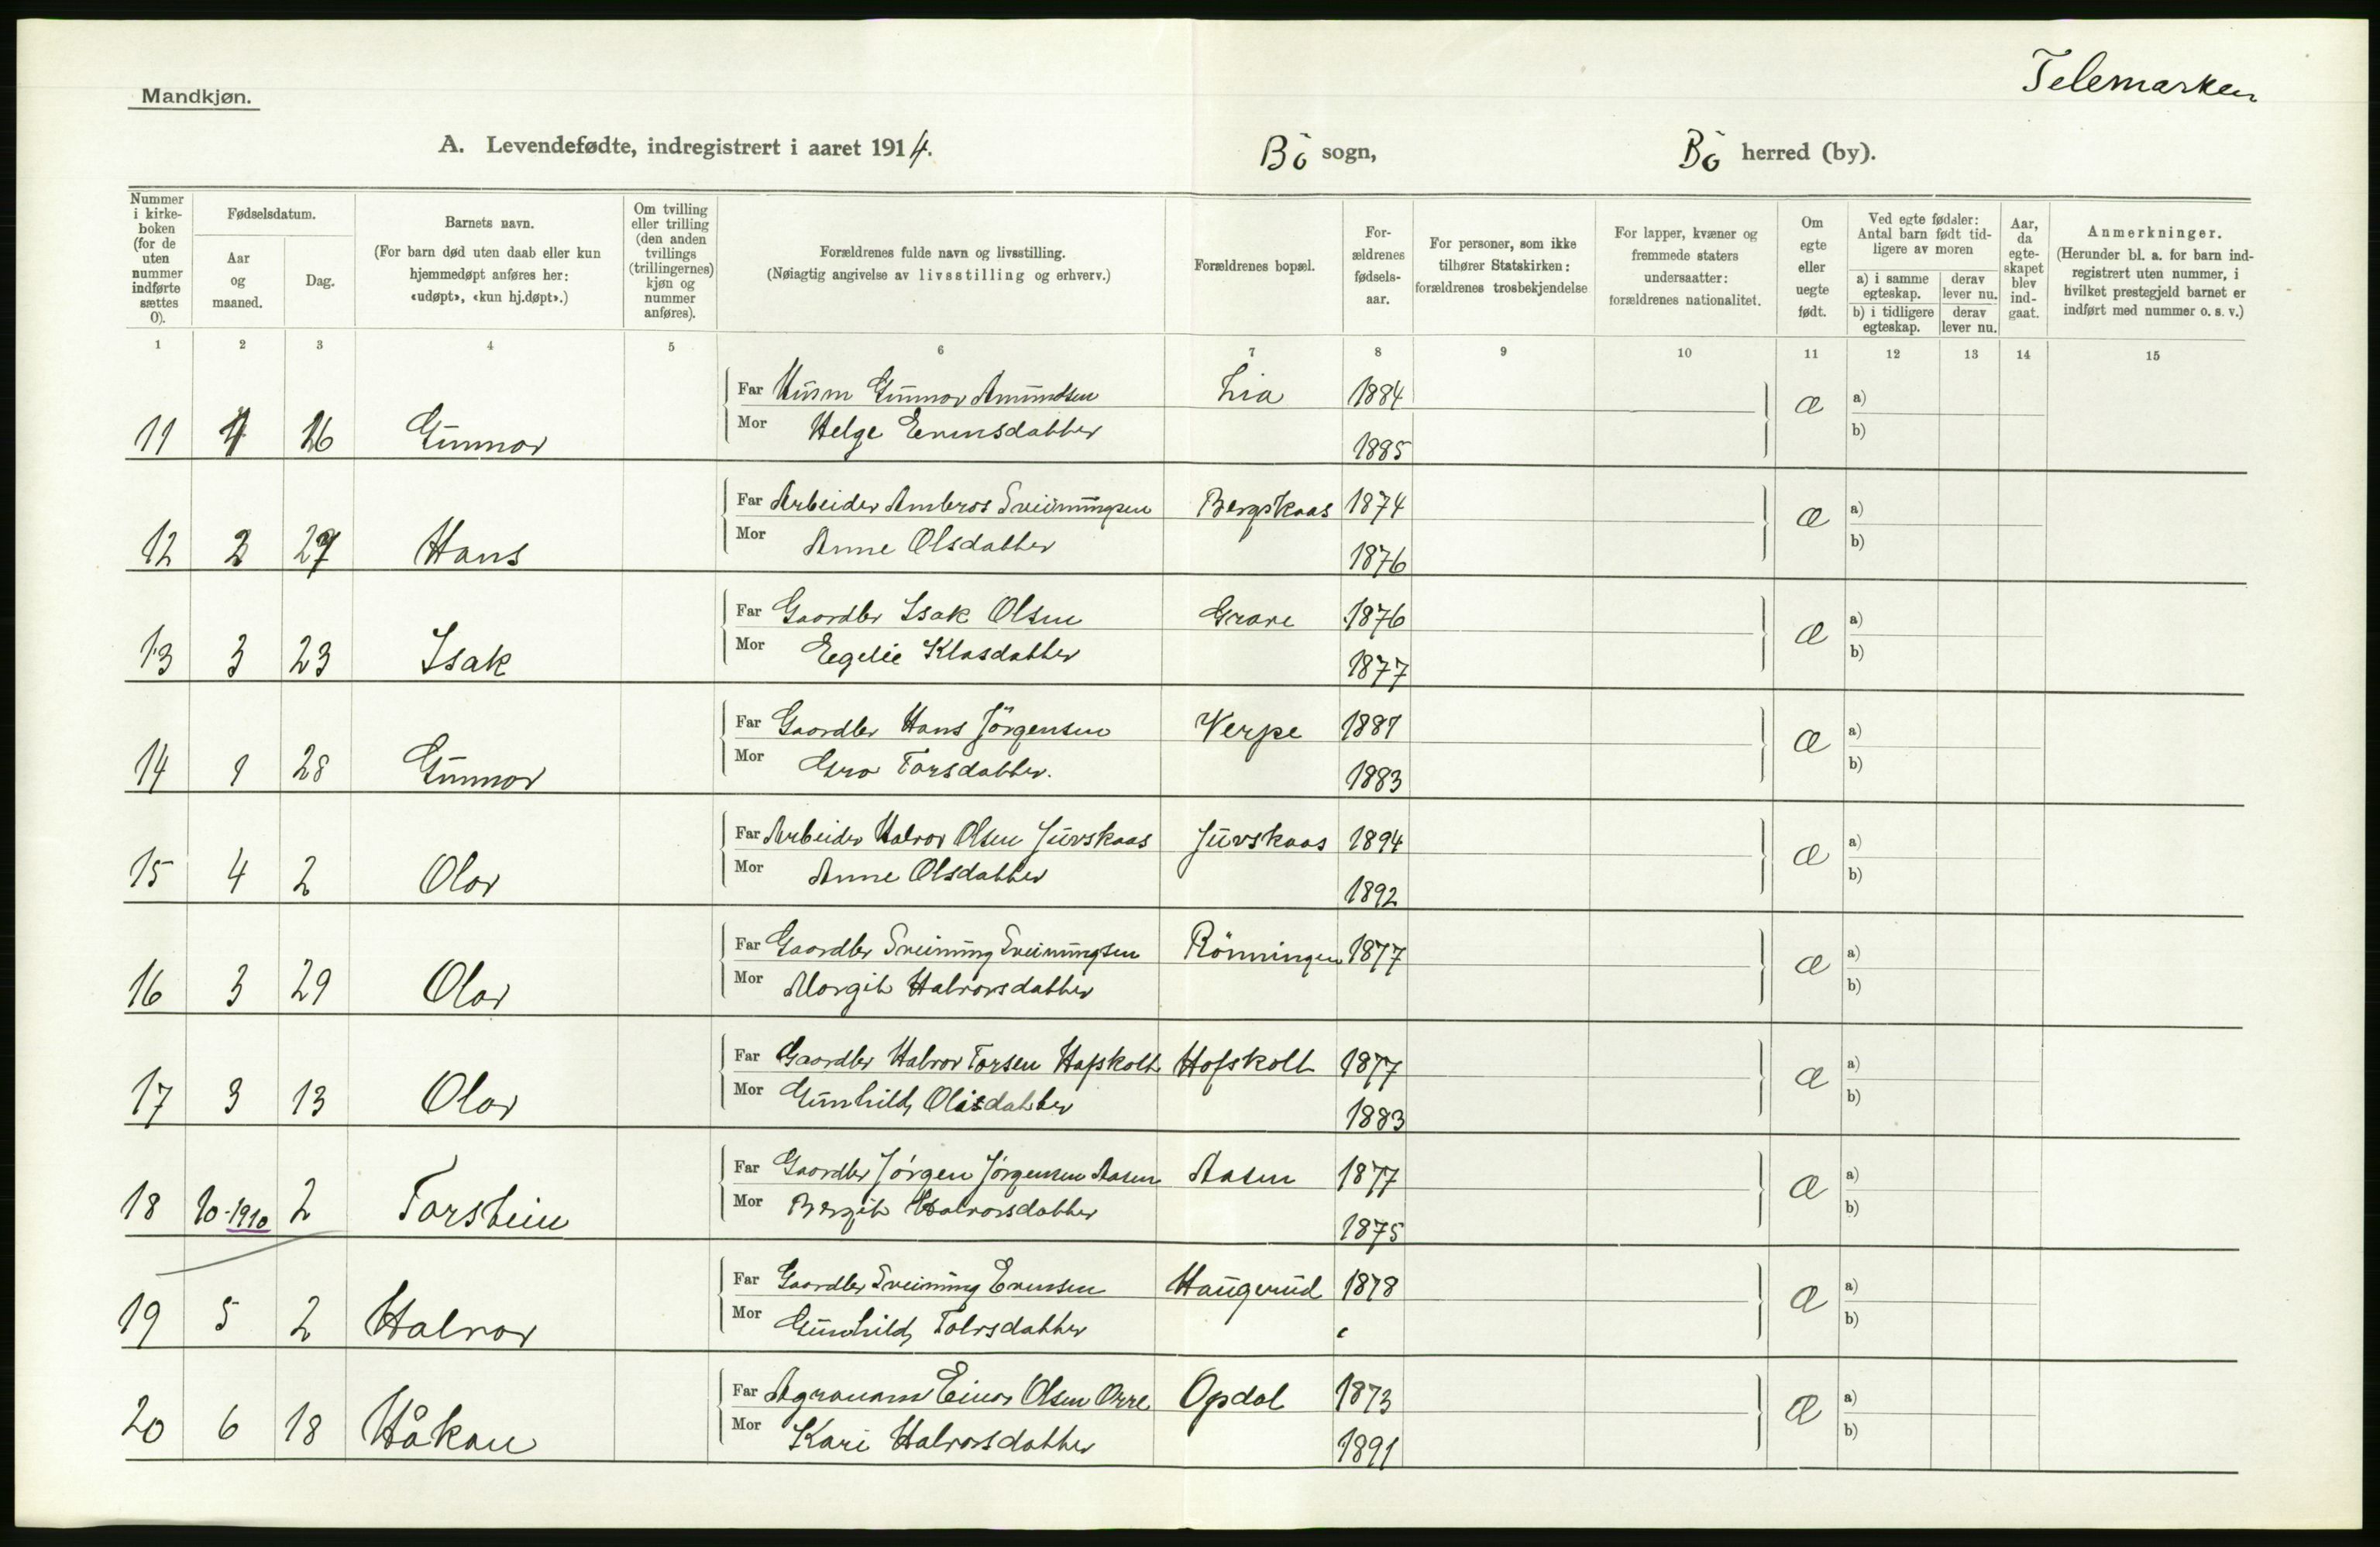 Telemarken
Mandkjøn.
A. Levendefødte, indregistrert i aaret 1914. Bö sogn, Bö herred (by).
Nummer i kirke-boken (for de uten nummer indførte sættes 0).
Fødselsdatum.
Aar og maaned.
Dag.
Barnets navn.
(For barn død uten daab eller kun hjemmedøpt anføres her: «udøpt», «kun hj.døpt».)
Om tvilling eller trilling (den anden tvillings (trillingernes) kjøn og nummer anføres).
Forældrenes fulde navn og livsstilling.
(Nøiagtig angivelse av livsstilling og erhverv.)
Forældrenes bopæl.
For-ældrenes fødsels-aar.
For personer, som ikke tilhører Statskirken: forældrenes trosbekjendelse
For lapper, kvæner og fremmede staters undersaatter: forældrenes nationalitet.
Om egte eller uegte født.
Ved egte fødsler: Antal barn født tid-ligere av moren
a) i samme egteskap. derav lever nu.
b) i tidligere egteskap. derav lever nu.
Aar, da egte-skapet blev ind-gaat.
Anmerkninger.
(Herunder bl. a. for barn ind-registrert uten nummer, i hvilket prestegjeld barnet er indført med nummer o. s. v.)
1 2 3 4 5 6 7 8 9 10 11 12 13 14 15
Far Husm Gunnar Amundsen Lia 1884 Æ a)
11 26 Gunnar Mor Helge Evensdatter 1885 b)
Far Arbeider Ambros Sveinungsen Bergskaas 1874 Æ a)
12 2 27 Hans Mor Anne Olsdatter 1876 b)
Far Gaardbr Isak Olsen Grave 1876 Æ a)
13 3 23 Isak Mor Egelie Klasdatter 1877 b)
Far Gaardbr Hans Jörgensen Verpe 1887 Æ a)
14 1 28 Gunnar Mor Gro Torsdatter. 1883 b)
Far Arbeider Halvor Olsen Juvskaas Juvskaas 1894 Æ a)
15 4 2 Olav Mor Anne Olsdatter 1892 b)
Far Gaardbr Sveinung Sveinungsen Rönningen 1877 Æ a)
16 3 29 Olav Mor Margit Halvorsdatter b)
Far Gaardbr Halvor Torsen Hafskolt Hofskolt 1877 Æ a)
17 3 13 Olav Mor Gunhild Olasdatter 1883 b)
Far Gaardbr Jörgen Jörgensen Aasen Aasen 1877 Æ a)
18 10-1910 2 Torstein Mor Bergit Halvorsdatter 1875 b)
Far Gaardbr Sveinung Evensen Haugerud 1878 Æ a)
19 5 2 Halvor Mor Gunhild Tolvsdatter b)
Far Agronom Einar Olsen Orre Opdal 1873 Æ a)
20 6 18 Håkon Mor Kari Halvorsdatter 1891 b)